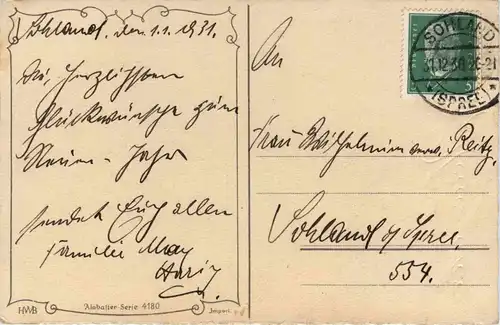 Sohland, den 1.1.1931.
Die herzlichsten
Glückwünsche zum
Neuen-Jahr
sendet Euch allen
Familie May
HWB
Alabaster-Serie 4180
Import.
SOHLAND
31.12.30.20-21
(SPREE)
5
An
Frau Wilhelmine verw. Reitz,
Sohland a/Spree,
554.